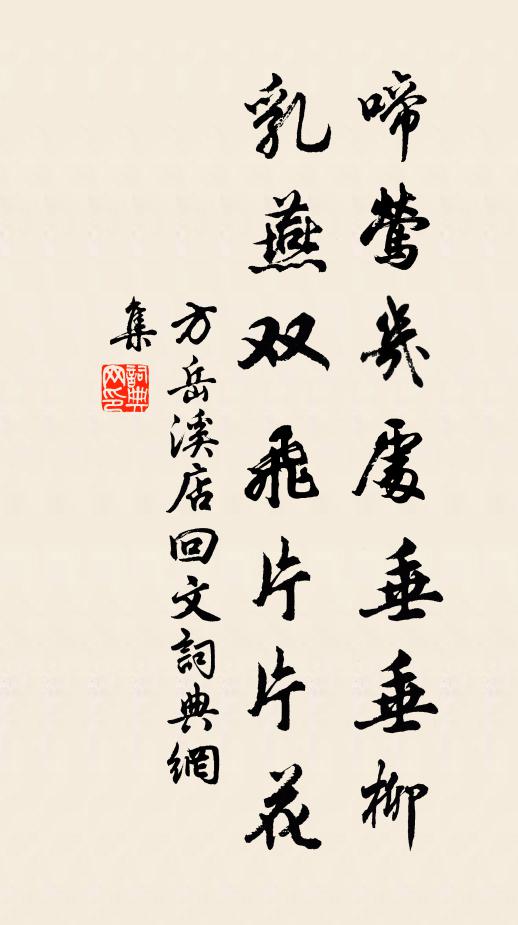 啼鶯幾處垂垂柳
乳燕双飛片片花
方岳溪店回文詞典網
集
詞典网印